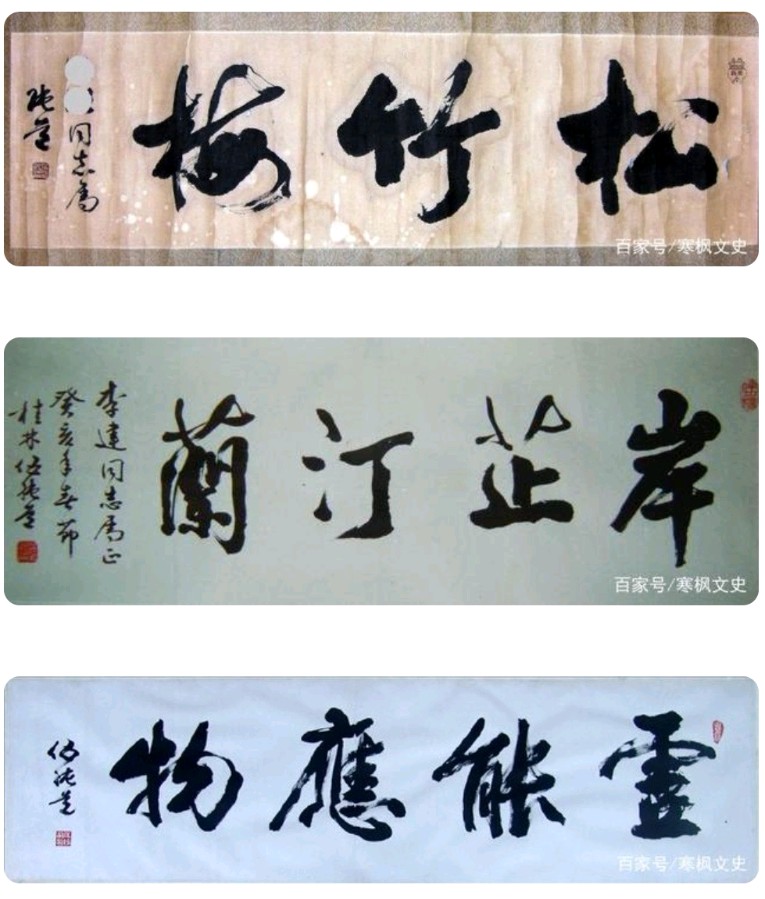 松竹梅
同志属
纯道
百家号/寒枫文史
岸芷汀蘭
李建同志属正
癸亥年春节
桂林伍纯道
百家号/寒枫文史
靈能應物
伍纯道
百家号/寒枫文史